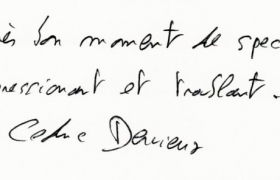 ès bon moment de spec
pressionant et troublant.
Cedric Derrieux